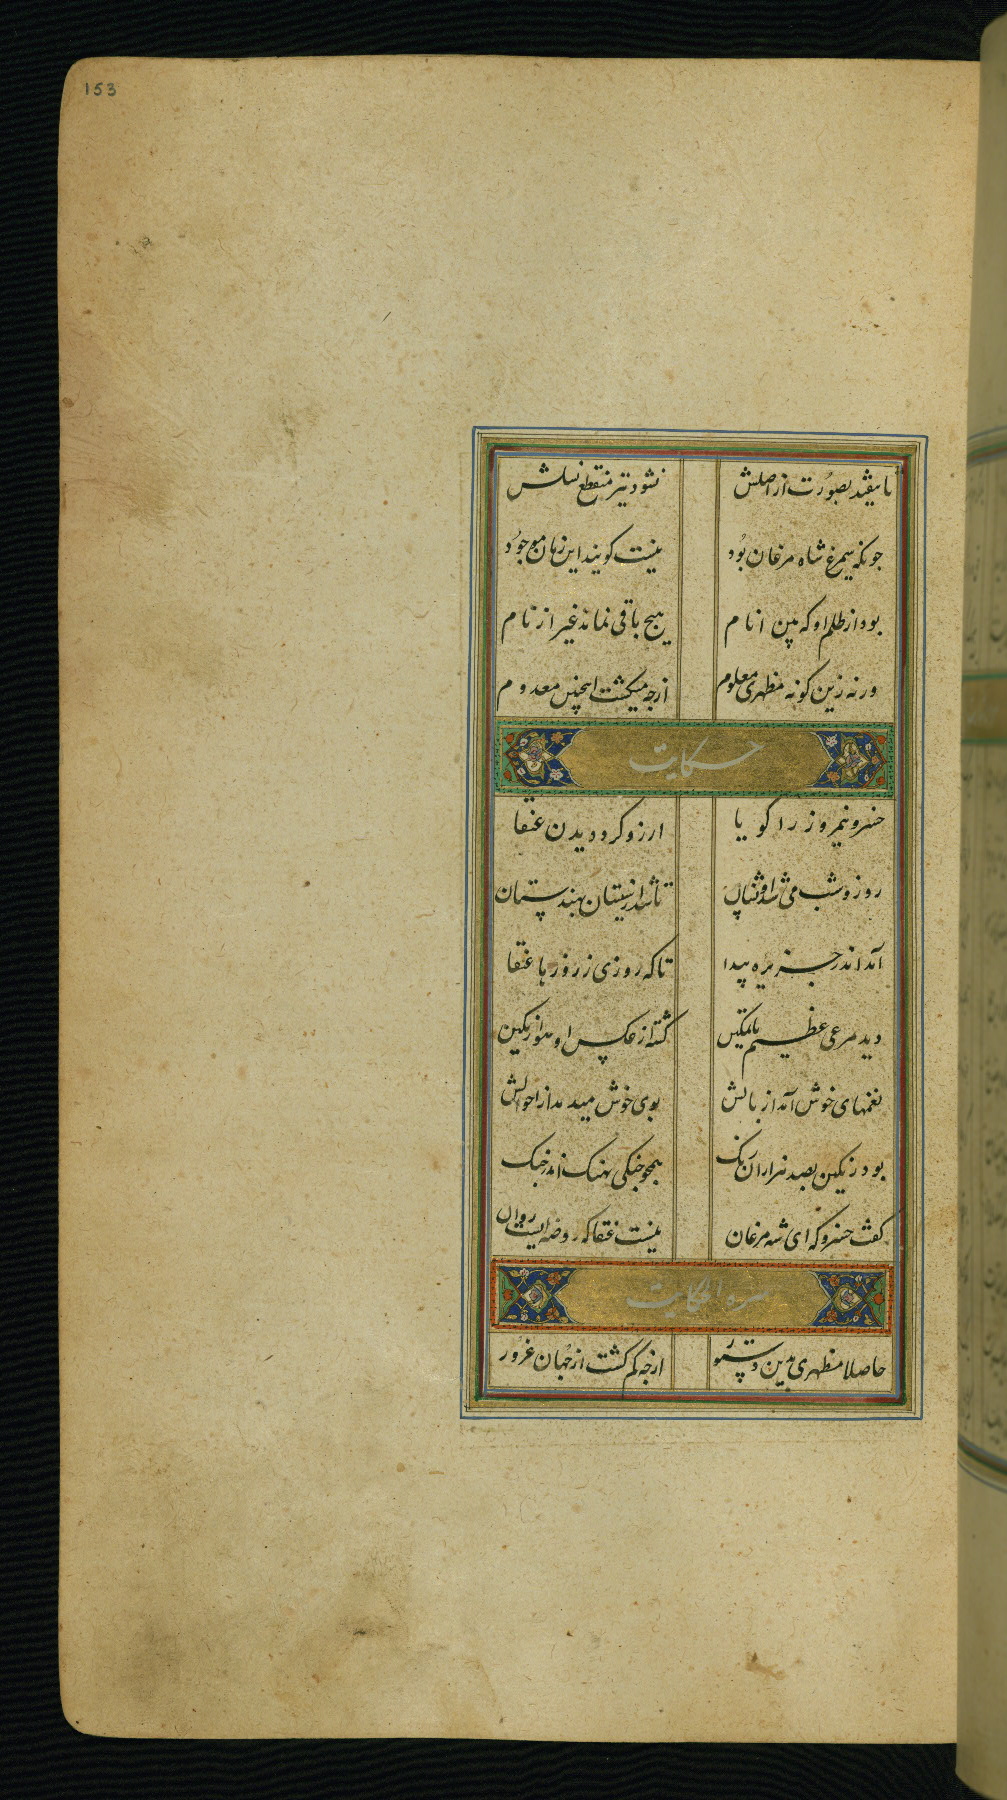 153
تا نیفتد بصورت از اصلش نشود نیز منقطع نسلش
چونکه سیمرغ شاه مرغان بود نیست کویند این زمان موجود
بود از ظلم او که بین انام هیچ باقی نماند غیر از نام
ورنه زین کونه مظهری معلوم ازچه میکشت اینچنین معدوم
حکایت
خسرو نیمروز را کویا ارزو کرد دیدن عنقا
روز و شب می شد تا شد از سیستان بهندستان
آمد اندر جزیره پیدا تا که روزی ز روزها عنقا
دید مرغی عظیم با تمکین کشته از عکس او هوا رنکین
نغمهای خوش آمد از بالش بوی خوش میدمد از
بود رنکین بصد هزاران رنک همچو جنکی نهنک اندر جنک
کفت خسرو که ای شه مرغان نیست عنقا که روضه ایست روان
سره الحکایت
حاصلا مظهری بدین دستور ازچه کم کشت از جهان غرور